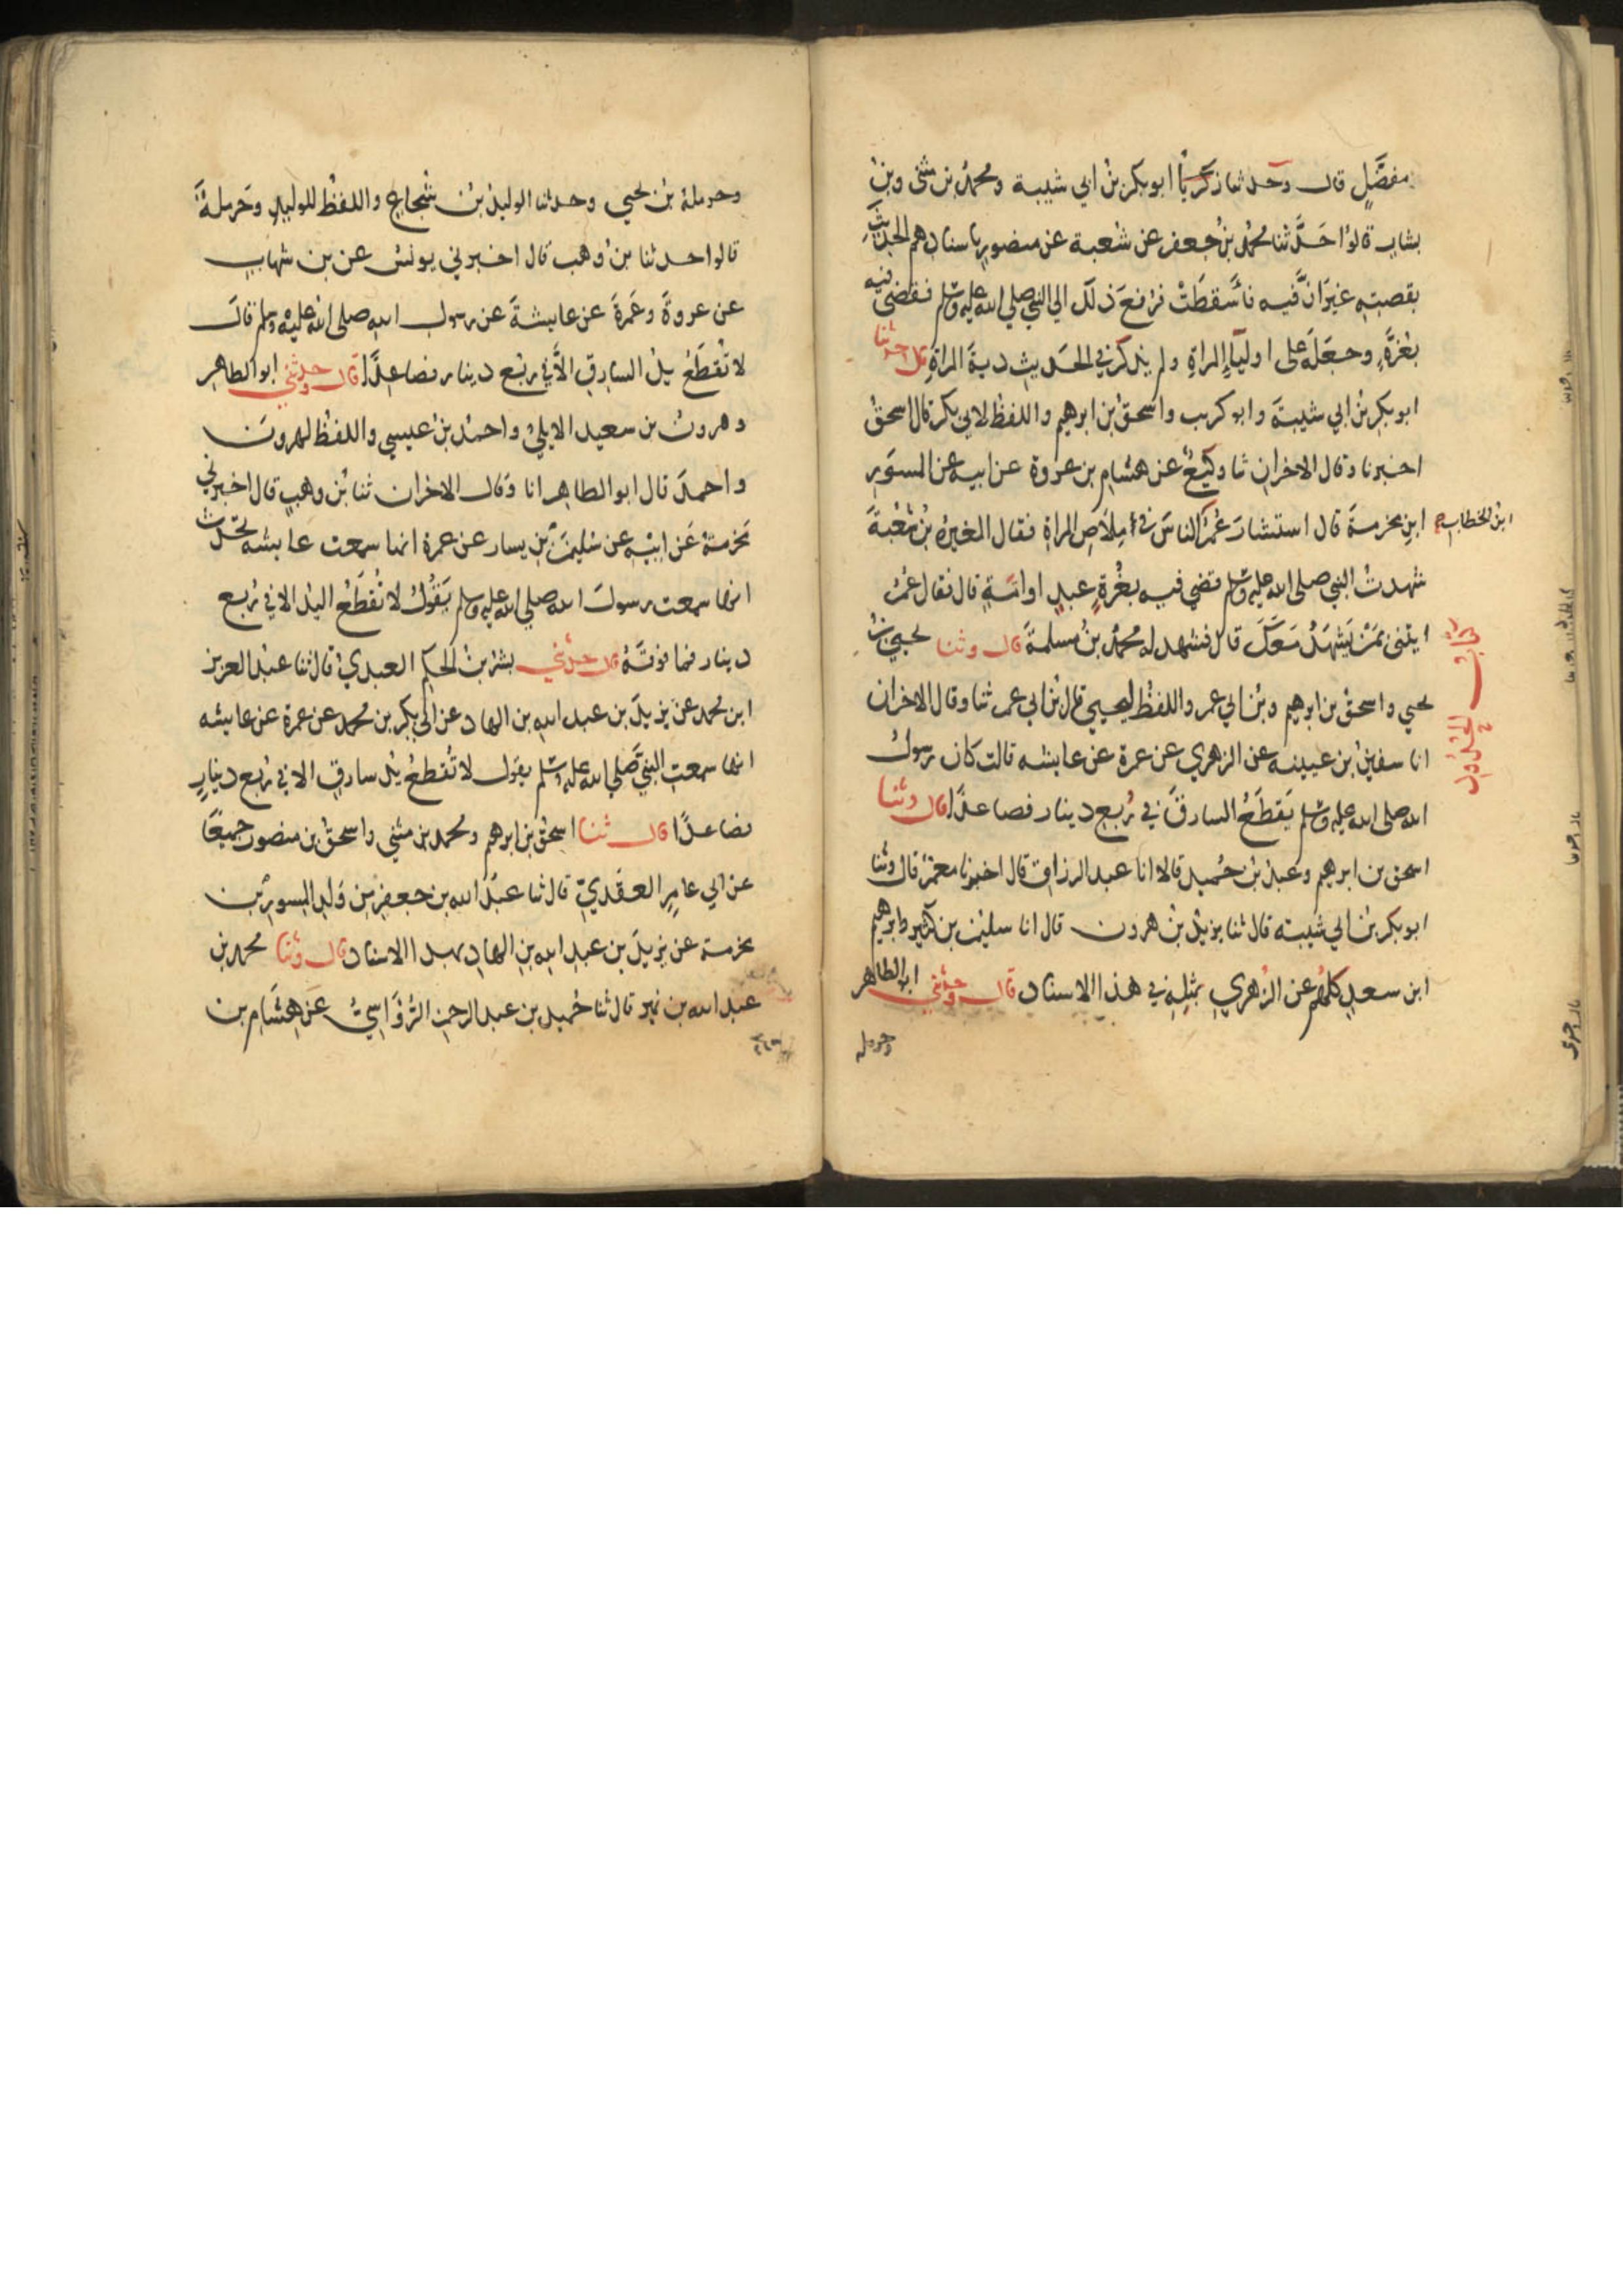 مفضَّلٍ قال وحدثنا زكريا ابو بكر بن ابي شيبة ومحمد بن مثنى وبن
بشار قالوا حدَّثنا محمد بن جعفر عن شعبة عن منصور باسنادهم الحديث
بقصته غير انَّ فيه فأسقطَتْ فرفع ذلك الي النبي صلي الله عليه وسلم فقضى فيه
بغرَّةٍ وجعَلَه على اولياءِ المراةِ ولم يذكر في الحديث ديةَ المراةِ قال وحدثنا
ابو بكر بنُ ابي شيبةَ وابو كريب واسحقُ بن ابرهيم واللفظ لابي بكر قال اسحقُ
اخبرنا وقال الاخرانِ ثنا وكيعٌ عن هشام بن عروة عن ابيه عن المسوَرِ
ابنِ مخرمةَ قال استشارَ عُمَرُ الناسَ في املاَصِ المراةِ فقال المغيرة بنُ شعْبةَ
ابن الخطاب
شهدتُ النبي صلى الله عليه وسلم قضي فيه بغُرةٍ عبدٍ او امَةٍ قال فقال عُمَرُ
ايتني بمَنْ يَشهَدُ مَعَكَ قال فشهد له محمدُ بنُ مسلمةَ قال وثنا يحيي بنُ
كتاب الحدود
يحيي واسحق بن ابرهيم وبنُ ابي عمر واللفظ ليحيي قال بنُ ابي عمر ثنا وقال الاخران
انا سفينُ بن عيينه عن الزهري عن عمرة عن عايشه قالت كان رسولُ
الله صلى الله عليه وسلم يَقطَعُ السارقَ في رُبع دينار فصاعدًا قال وثنا
اسحق بن ابرهيم وعبدُ بنُ حُميد قالا انا عبد الرزاق قال اخبرنا معمرٌ قال وثنا
ابو بكر بنُ ابي شيبته قال ثنا يزيدُ بنُ هرون قال انا سليمن بن كثير وابرهيم
ابن سعدٍ كلهُم عن الزُهري بمثلِه في هذا الاسناد قال وحدثني ابو الطاهر
وحرمله
وحرملة بنُ يحيي وحدثنا الوليدُ بنُ شُجاعٍ واللفظُ للوليدِ وحَرملةَ
قالوا حدثنا بنُ وهب قال اخبرني يونسُ عن بن شهاب
عن عروةَ وعَمرةَ عن عايشةَ عن رسول الله صلى الله عليه وسلم قال
لا تُقطَعُ يدُ السارقِ الاَّ في ربُع دينار فصاعدًا قال وحدثني ابو الطاهر
وهرونُ بن سعيد الايليُّ واحمدُ بن عيسي واللفظ لهرونَ
واحمدَ قال ابو الطاهر انا وقال الاخران ثنا بُن وهبٍ قال اخبرني
مَخرَمَةُ عَن ابيْهِ عن سُليمَنَ بنِ يسار عن عمرة انها سمعت عايشه تحدث
انها سمعت رسولَ الله صلي الله عليه وسلم يَقُوْلُ لا تُقطَعُ اليدُ الا في رُبع
دينار فما فوقَهُ قال حدثني بشرُ بنُ الحكم العبديُ قال ثنا عبدُ العزيز
ابن محمد عن يزيدَ بن عبد الله بن الهاد عن ابي بكر بن محمد عن عمرة عن عايشه
انها سمعت النبيَّ صَلي الله عليه وسلم يقول لا تُقطعُ يدُ سارقٍ الا في رُبع دينارٍ
فصاعدًا قال ثنا اسحقُ بن ابرهم ومحمد بن مثني واسحقُ بن منصور جميعًا
عن ابي عامِرٍ العقَديّ قال ثنا عبدُ الله بن جعفرٍ من وَلدِ المسورِ بن
مخرمة عن يزيدَ بن عبدِ الله بنِ الهادِ بهذا الاسناد قال وثنا محمد بن
عبد الله بن نمير قال ثنا حُميدُ بن عبد الرحمن الرُؤَاسِيُّ عَن هِشَام بن